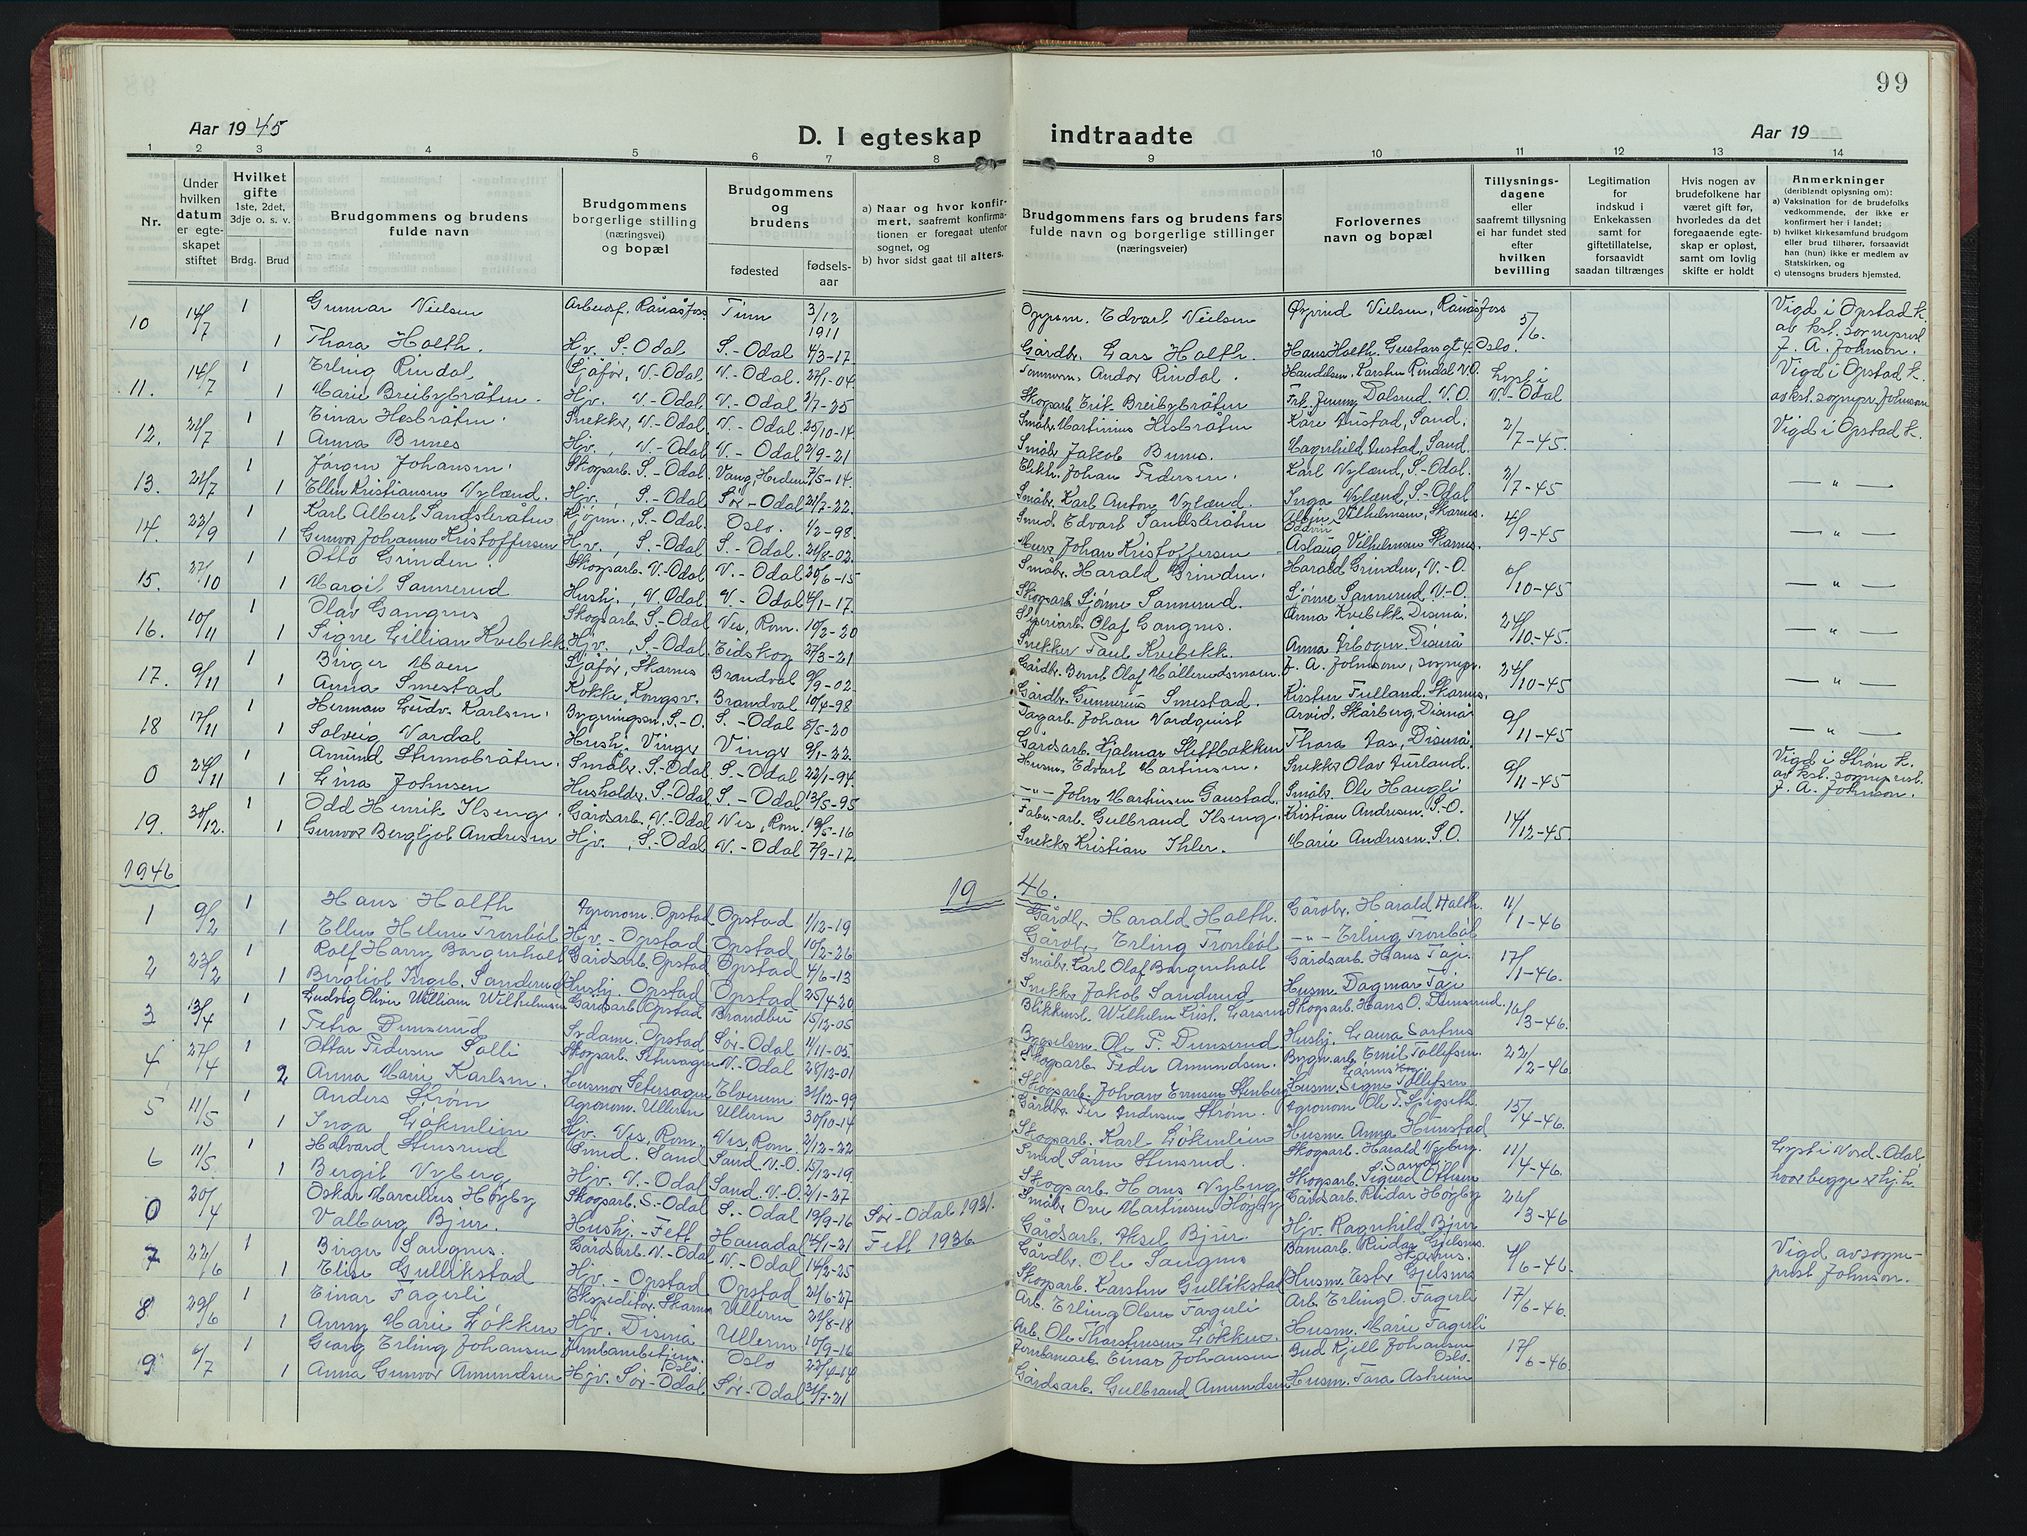 99
Aar 1945
D. I egteskap indtraadte
Aar 19
1 2 3 4 5 6 7 8 9 10 11 12 13 14
Nr.
Under hvilken datum er egteskapet stiftet
Hvilket gifte 1ste, 2det, 3dje o. s. v.
Brdg. Brud
Brudgommens og brudens fulde navn
Brudgommens borgerlige stilling (næringsvei) og bopæl
Brudgommens og brudens
fødested fødselsaar
a) Naar og hvor konfirmert, saafremt konfirmationen er foregaat utenfor sognet, og
b) hvor sidst gaat til alters.
Brudgommens fars og brudens fars fulde navn og borgerlige stillinger (næringsveier)
Forlovernes navn og bopæl
Tillysningsdagene eller saafremt tillysning ei har fundet sted efter hvilken bevilling
Legitimation for indskud i Enkekassen samt for giftetillatelse, forsaavidt saadan tiltrænges
Hvis nogen av brudefolkene har været gift før, hvorledes da det foregaaende egteskap er opløst, samt om lovlig skifte er holdt
Anmerkninger (deriblandt oplysning om):
a) Vaksination for de brudefolks vedkommende, der ikke er konfirmert her i landet;
b) hvilket kirkesamfund brudgom eller brud tilhører, forsaavidt han (hun) ikke er medlem av Statskirken, og
c) utensogns bruders hjemsted.
10 14/7 1 Gunnar Nielsen Arbeidsf. Rånåsfoss Tinn 3/12 1911 Oppsm. Edvart Nielsen Øyvind Nielsen, Rånåsfoss 5/6. Vigd i Opstad k. av kst. sogneprest J. A. Johnsen.
1 Thora Holth. Hj. S-Odal S.-Odal 4/3-17. Gårdbr. Lars Holth. Hans Holth. Gustavsgt 4. Oslo.
11. 14/7 1 Erling Rindal Sjåfør, V.-Odal V.-Odal. 27/1-04 Tømmerm. Andor Rindal. Handelsm. Karsten Rindal V.O. Lyst i V.-Odal Vigd i Opstad k. av kst. sognepr. Johnsen
1 Marie Breibybråten. Hj. V.-Odal V.-Odal 2/7-25 Skogsarb. Erik Breibybråten Frk. Jenny Dalsrud. V.O.
12. 21/7 1 Einar Hesbråten. Snekker, V.-Odal. V.-Odal. 25/10-14. Småbr. Martinius Hesbråten Kåre Austad, Sand. 2/7-45 Vigd i Opstad k.
1 Anna Bunes Hj. V.-Odal V.-Odal 2/9-21 Småbr. Jakob Bunes. Magnhild Austad, Sand.
13. 21/7 1 Jørgen Johansen. Skogsarb. S.-Odal Vang, Hedem. 7/5-14. Elektr. Johan Pedersen. Karl Nylænd, S.-Odal. 2/7-45 — " —
1 Ellen Kristiansen Nylænd. Hj. S.-Odal Sør-Odal 21/7-22. Småbr. Karl Anton Nylænd. Inga Nylænd, S.-Odal
14. 22/9 1 Karl Albert Sandsbråten Gjørm., S.-Odal. Oslo. 1/2-98. Smed Edvart Sandsbråten Vilhelmsen, Skarnes. 4/9-45 — " —
1 Gunvor Johanne Kristoffersen Hj. S.-Odal S.-Odal. 21/8-02. Murer Johan Kristoffersen Aslaug Vilhelmsen Skarnes.
15. 27/10 1 Otto Grinden. Skogsarb. V.-Odal V.-Odal. 20/6-15 Småbr. Harald Grinden. Harald Grinden, V.-O. 6/10-45 — " —
1 Margit Sannerud Hushj., V.Odal V-Odal 4/1-17. Skogsarb. Sjørne Sannerud. Sjørne Sannerud. V.-O.
16. 10/11 1 Olav Gangnes Skogsarb. S.-Odal Nes, Rom. 10/2-20 Sliperiarb. Olaf Gangnes. Anna Kvebekk. Disenå 24/10-45. — " —
1 Signe Lillian Kvebekk. Hj., S.-Odal. Eidskog 27/3-21 Snekker Paul Kvebekk. Anna Disenå
17. 9/11 1 Birger Moen Sjåfør, Skarnes Brandval 9/9-02 Gårdbr. Bernt Olaf Møllerudsmoen J. A. Johnsen, sognepr. 24/10-45 — " —
1 Anna Smestad Kokke, Kongsv. Brandval 10/4-98 Gårdbr. Gunnerius Smestad. Kirsten Fulland. Skarnes.
18 17/11 1 Herman Leidv. Karlsen. Bygningssn. S.-O. S.-Odal 5/5-20 Fagarb. Johan Nordquist Arvid Skårberg, Disenå 9/11-45 — " —
1 Solveig Nordal Hushj. Vinger Vinger 9/1-22. Gårdsarb. Hjalmar Sletbakken Thora Aas, Disenå
0 24/11 1 Amund Stumobråten. Småbr. S.-Odal S.-Odal 22/1-94. Husm. Edvart Martinsen. Snekker Olav Furland. 9/11-45 Vigd i Strøm k. av kst. sogneprest J. A. Johnsen.
1 Lina Johnsen Husholdr. S.-Odal S.-Odal 13/5-95 —"— John Martinsen Gaustad. Småbr. Ole Haugli
19. 30/12. 1 Odd Henrik Ilseng. Gårdsarb. V-Odal Nes, Rom. 19/5-16 Fabr.-arb. Gulbrand Ilseng. Kristian Andresen. S.O. 14/12-45
1 Gunvor Bergljot Andresen Hj., S.-Odal V.-Odal 7/9-17. Snekker Kristian Ihler. Marie Andresen. S.O.
1946 19 46.
1 9/2 1 Hans Holth Agronom. Opstad Opstad 1/12-19 Gårdbr. Harald Holth. Gårdbr. Harald Holth. 11/1-46
1 Ellen Helene Tronbøl Hj.-Opstad Opstad 10/2-26 Gårdbr. Erling Tronbøl —"— Erling Tronbøl
2 23/2 1 Rolf Harry Borgenholt Gårdsarb. Opstad Opstad 4/6-13 Småbr. Karl Olaf Borgenholt Gårdsarb. Hans Taje. 17/1-46.
1 Bergliot Ingeb. Sanderud Hushj. Opstad Opstad 25/4-20 Snekker Jakob Sanderud Husm. Dagmar Taje
3 13/4 Ludvig Oliver William Wilhelmsen Gårdsarb. Opstad Brandbu 15/12-05 Blikkensl. Wilhelm Krist. Larsen Skogsarb. Hans O. Dunserud. 16/3-46.
1 Petra Dunserud Sydame. Opstad Sør-Odal 11/11-05. Bygselsm. Ole P. Dunserud Hushj. Laura Sorfnes
4 27/4 1 Ottar Pedersen Solli Skogsarb. Setersagen V.-Odal 28/12-01 Skogsarb. Peder Amundsen. Bygn.arb. Emil Tollefsen. 22/2-46.
2 Anna Marie Karlsen. Husmor Setersagen Elverum 31/12-99 Skogsarb. Johan Evensen Stenberg Husm. Signe Tollefsen
5 11/5 1 Anders Strøm Agronom. Ullern Ullern 30/10-14 Gårdbr. Per Andersen Strøm. Agronom Ole P. Spigseth. 15/4-46.
1 Inga Løkenlien Hj. Nes, Rom. Nes, Rom. 2/12-22 Skogsarb. Karl Løkenlien Husm. Anna Hunstad
6 11/5. 1 Halvard Stensrud Smed. Sand Sand. V.-O. 15/12-19. Smed Sørin Stensrud. Skogsarb. Harald Nyberg. Sand 11/4-46. Lyst i Nord-Odal hvor begge er hj.h.
1 Bergit Nyberg Hj. V.-Odal Sand. V.-O. 2/1-27 Skogsarb. Hans Nyberg Skogsarb. Sigurd Ottesen
0 20/4 Oskar Marcelius Høyby Skogsarb. S.-Odal S.-Odal 19/9-16 Sør-Odal 1931. Småbr. Ove Martinsen Høyby Gårdsarb. Reidar Høyby 26/3-46
Valborg Bjur. Hushj.-Fett Hanadal 14/1-21 Fett 1936. Gårdsarb. Aksel Bjur. Hj. Ragnhild Bjur
7 22/6 1 Birger Sangnes. Gårdsarb. V.-Odal V.-Odal 14/2-25 Gårdbr. Ole Sangnes Banearb. Reidar Gjelsnes Skarnes. 4/6-46. Vigd av sogneprest Johnsen.
1 Elise Gullikstad Hj.-Opstad Opstad 21/6-27 Skogsarb. Karsten Gullikstad Husm. Ester Gjelsnes
8 29/6 1 Einar Fagerli Ekspeditør Skarnes Ullern 21/8-18 Arb. Erling Olsen Fagerli Arb. Erling O. Fagerli 17/6-46.
1 Anny Marie Løkken Hj. Disenå Ullern 10/9-16 Arb. Ole Thorstensen Løkken. Husm. Marie Fagerli
9 6/7 1 Georg Erling Johansen Jernbanebetjen. Oslo Oslo 22/4-14 Einar Johansen Bud Kjell Johansen Oslo. 17/6-46.
1 Anna Gunvor Amundsen Hj. Sør-Odal Sør-Odal 31/7-21 Gårdsarb. Gulbrand Amundsen Husm. Tora Astheim